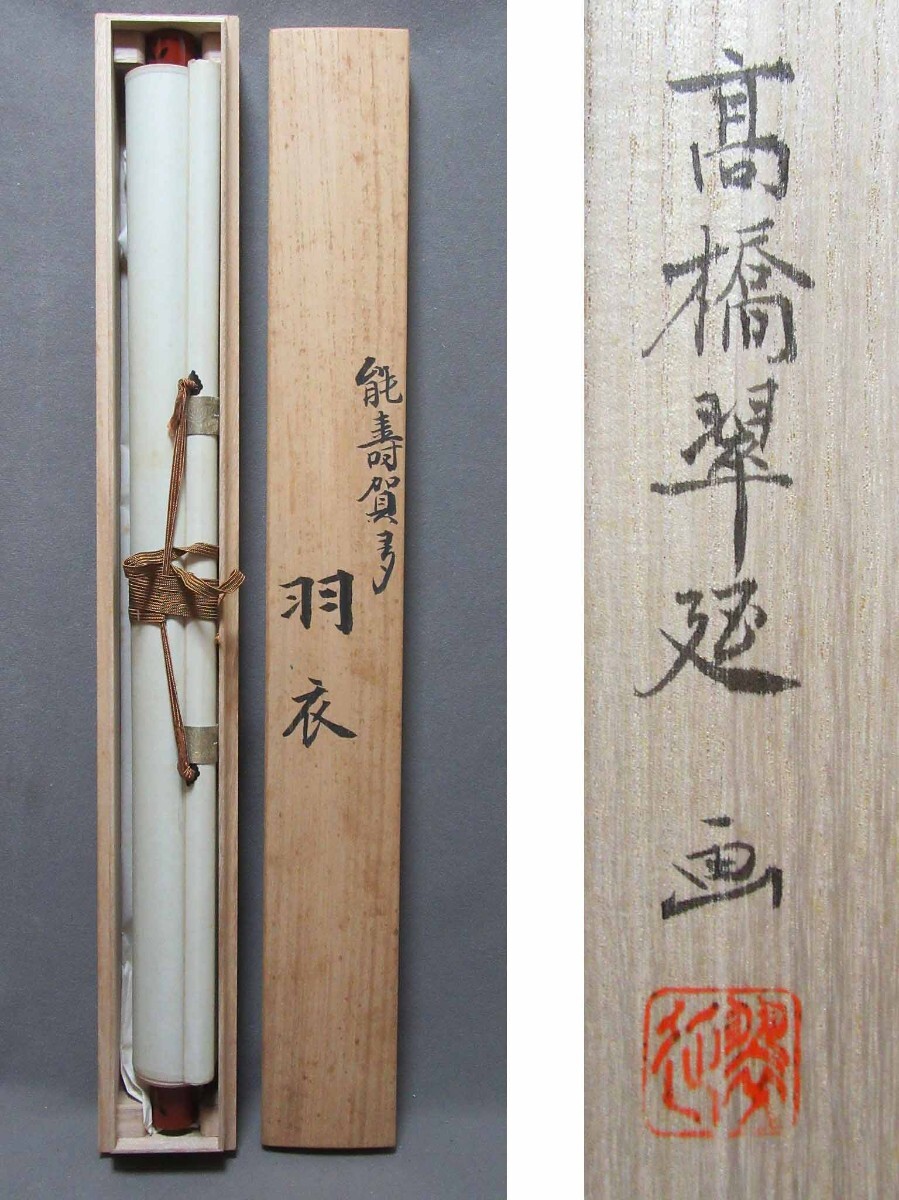 能壽賀多
羽衣
髙橋翠延
画
翠延